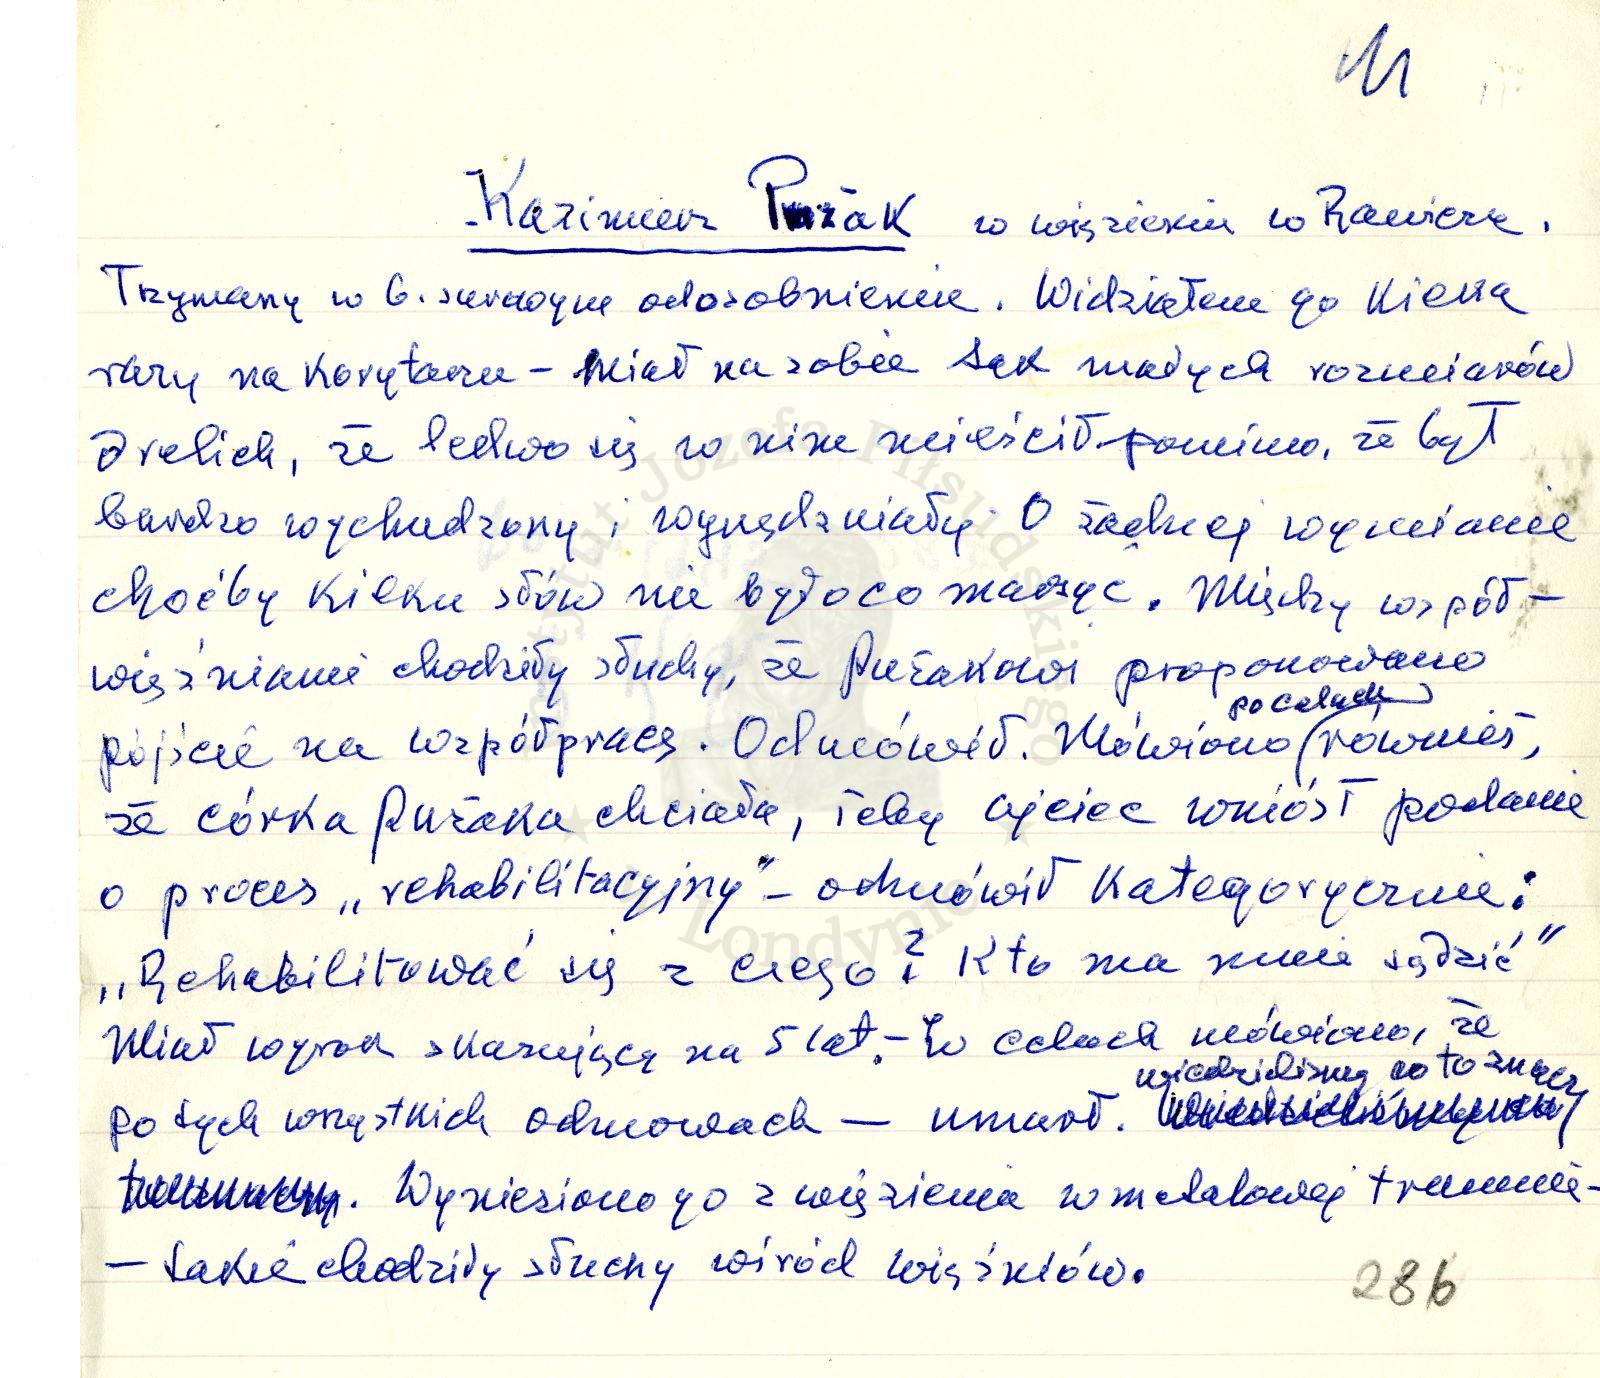 Kazimierz Pużak w więzieniu w Rawiczu.
Trzymany w b. surowym odosobnieniu. Widziałem go kilka
razy na korytarzu – Miał na sobie tak małych rozmiarów
drelich, że ledwo się w nim mieścił pomimo, że był
bardzo wychudzony i wynędzniały. O żadnej wymianie
choćby kilku słów nie było co marzyć. Między współ-
więźniami chodziły słuchy, że Pużakowi proponowano
pójście na współpracę. Odmówił. Mówiono po celach również,
że córka Pużaka chciała, żeby ojciec wniósł podanie
o proces „rehabilitacyjny" – odmówił kategorycznie:
„Rehabilitować się z czego? Kto ma mnie sądzić"
Miał wyrok skazujący na 5 lat. – W celach mówiono, że
po tych wszystkich odmowach – umarł. wiedzieliśmy co to znaczy
Wyniesiono go z więzienia w metalowej trumnie –
– takie chodziły słuchy wśród więźniów.
286
Instytut Józefa Piłsudskiego
w Londynie